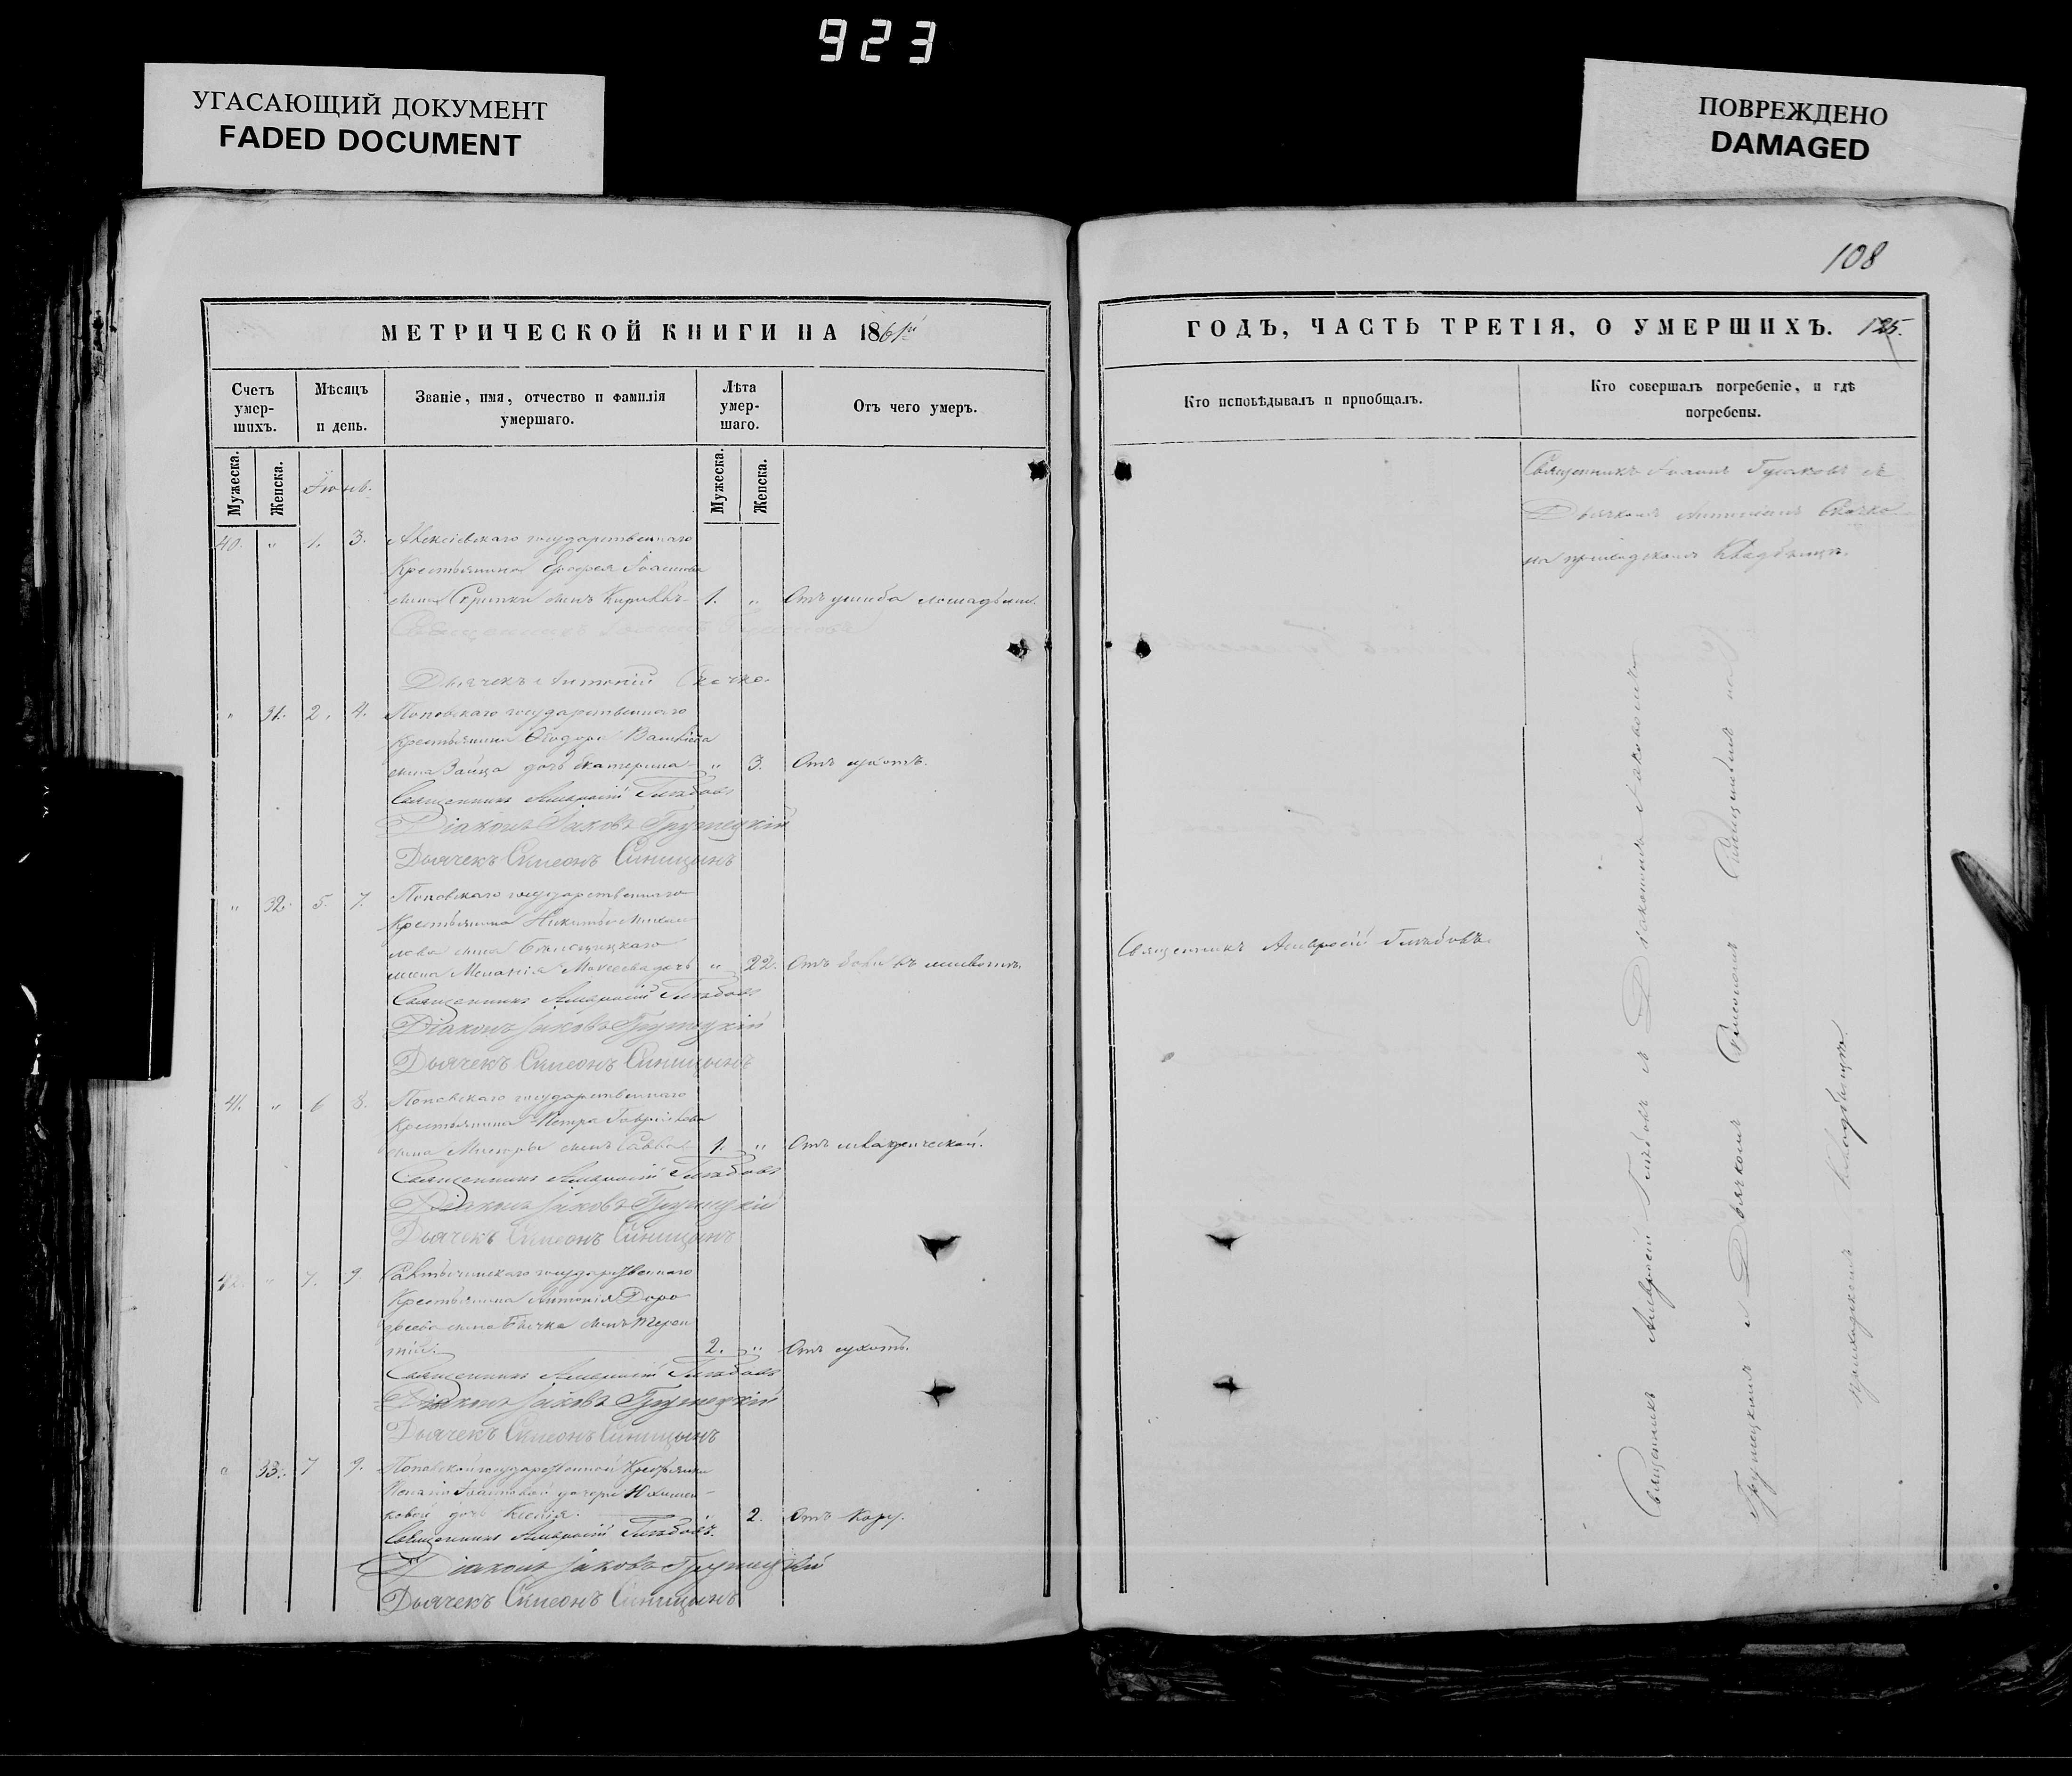 923
УГАСАЮЩИЙ ДОКУМЕНТ
FADED DOCUMENT
ПОВРЕЖДЕНО
DAMAGED
108
МЕТРИЧЕСКОЙ КНИГИ НА 1861й
Счетъ умер-шихъ.
Мѣсяцъ и день.
Званіе, имя, отчество и фамилія умершаго.
Лѣта умер-шаго.
Отъ чего умеръ.
Мужеска.
Женска.
Мужеска.
Женска.
Іюнь.
40. " 1. 3. Алексіевскаго государственнаго
Крестьянина Ерофея Іоаннова
сына Скрипки сынъ Кириллъ 1. " Отъ ушиба лошадьми.
Священникъ Іоаннъ
Дьячекъ Антоній Сkачко
" 31. 2. 4. Поповскаго государственнаго
крестьянина Ѳеодора Васильева
сына Зайца дочь Екатерина " 3. Отъ сухотъ.
Священникъ Амвросій Глѣбовъ
Діаконъ Іаковъ Грушецкій
Дьячекъ Симеонъ Синицынъ
" 32. 5. 7. Поповскаго государственнаго
Крестьянина Никиты Михаи-
лова сына
жена Меланія Моисеева дочь " 22. Отъ боли въ животѣ.
Священникъ Амвросій Глѣбовъ
Діаконъ Іаковъ Грушецкій
Дьячекъ Симеонъ Синицынъ
41. " 6 8. Поповскаго государственнаго
Крестьянина Петра Гавриілова
сына сынъ Савва 1. " Отъ
Священникъ Амвросій Глѣбовъ
Діаконъ Іаковъ Грушецкій
Дьячекъ Симеонъ Синицынъ
42. " 7. 9. государственнаго
Крестьянина Антонія Доро
феева сына Бычка сынъ Терен
тій. 2. " Отъ сухотъ.
Священникъ Амвросій Глѣбовъ
Діаконъ Іаковъ Грушецкій
Дьячекъ Симеонъ Синицынъ
" 33. 7 9. Поповской государственной Крестьянки
Іоанновой дочери
ковой дочь Ксенія. 2. Отъ Кору.
Священникъ Амвросій Глѣбовъ.
Діаконъ Іаковъ Грушецкій
Дьячекъ Симеонъ Синицынъ
ГОДЪ, ЧАСТЬ ТРЕТІЯ, О УМЕРШИХЪ. 125.
Кто исповѣдывалъ и пріобщалъ.
Кто совершалъ погребеніе, и гдѣ
погребены.
Священникъ Іоаннъ съ
Дьячкомъ Антоніемъ Скачко
на приходскомъ Кладбищѣ.
Священникъ Амвросій Глѣбовъ.
Священникъ Амвросій Глѣбовъ съ Діакономъ Іаковомъ
Грушецкимъ и Дьячкомъ Симеономъ Синицынымъ на
приходскомъ кладбищѣ.